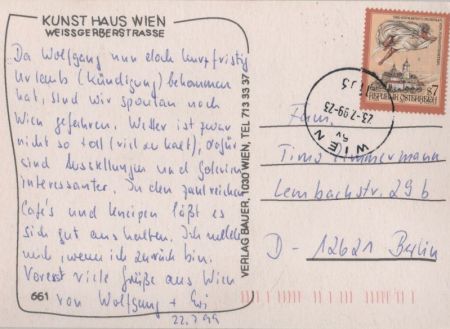 KUNST HAUS WIEN
WEISSGERBERSTRASSE
Da Wolfgang nun doch kurzfristig
Urlaub (Kündigung) bekommen
hat, sind wir spontan nach
Wien gefahren. Wetter ist zwar
nicht so toll (viel zu kalt), dafür
sind Ausstellungen und Galerien
interessanter. In den zahlreichen
Café's und Kneipen läßt es
sich gut aushalten. Ich melde
mich, wenn ich zurück bin.
Vorerst viele Grüße aus Wien
von Wolfgang + Evi
22.7.99
661
VERLAG BAUER, 1030 WIEN, TEL. 713 33 37
REPUBLIK ÖSTERREICH
S7
23-7-99-23
WIEN
Timo Zimmermann
Lembachstr. 29b
D - 12621 Berlin